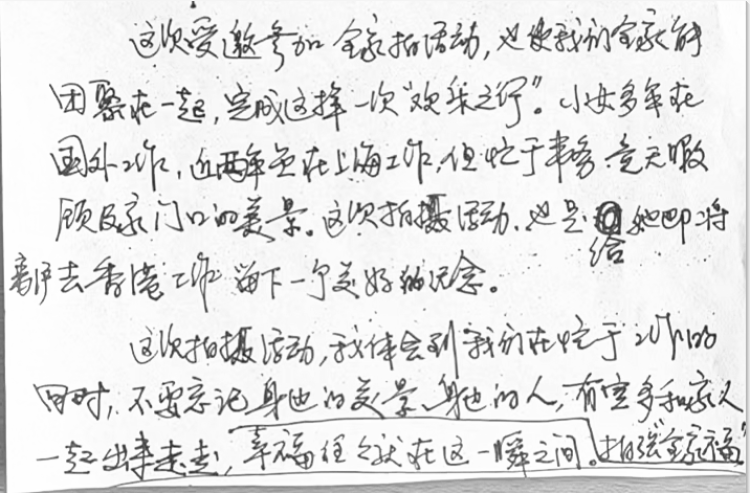 这次受邀参加全家拍活动,也使我们全家能
团聚在一起,完成这样一次“欢乐之行”。小女多年在
国外工作,近两年虽在上海工作,但忙于事务,竟无暇
顾及家门口的美景。这次拍摄活动,也是给她即将
离沪去香港工作留下一个美好的纪念。
这次拍摄活动,我体会到我们在忙于工作的
同时,不要忘记身边的美景、身边的人,有空多和家人
一起出来走走,幸福往往就在这一瞬之间。拍张“全家福”